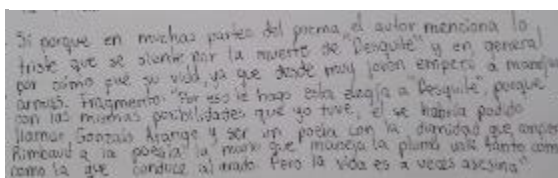 Sí porque en muchas partes del poema, el autor menciona lo
triste que se siente por la muerte de "Desquite" y en general
por cómo fué su vida, ya que desde muy joven empezó a manejar
armas. Fragmento: "Por eso le hago esta elegía a "Desquite", porque
con las mismas posibilidades que yo tuve, él se habría podido
llamar Gonzalo Arango y ser un poeta con la dignidad que
Rimbaud a la poesía: la mano que maneja la pluma vale tanto como
como la que conduce al arado. Pero la vida es a veces asesina".